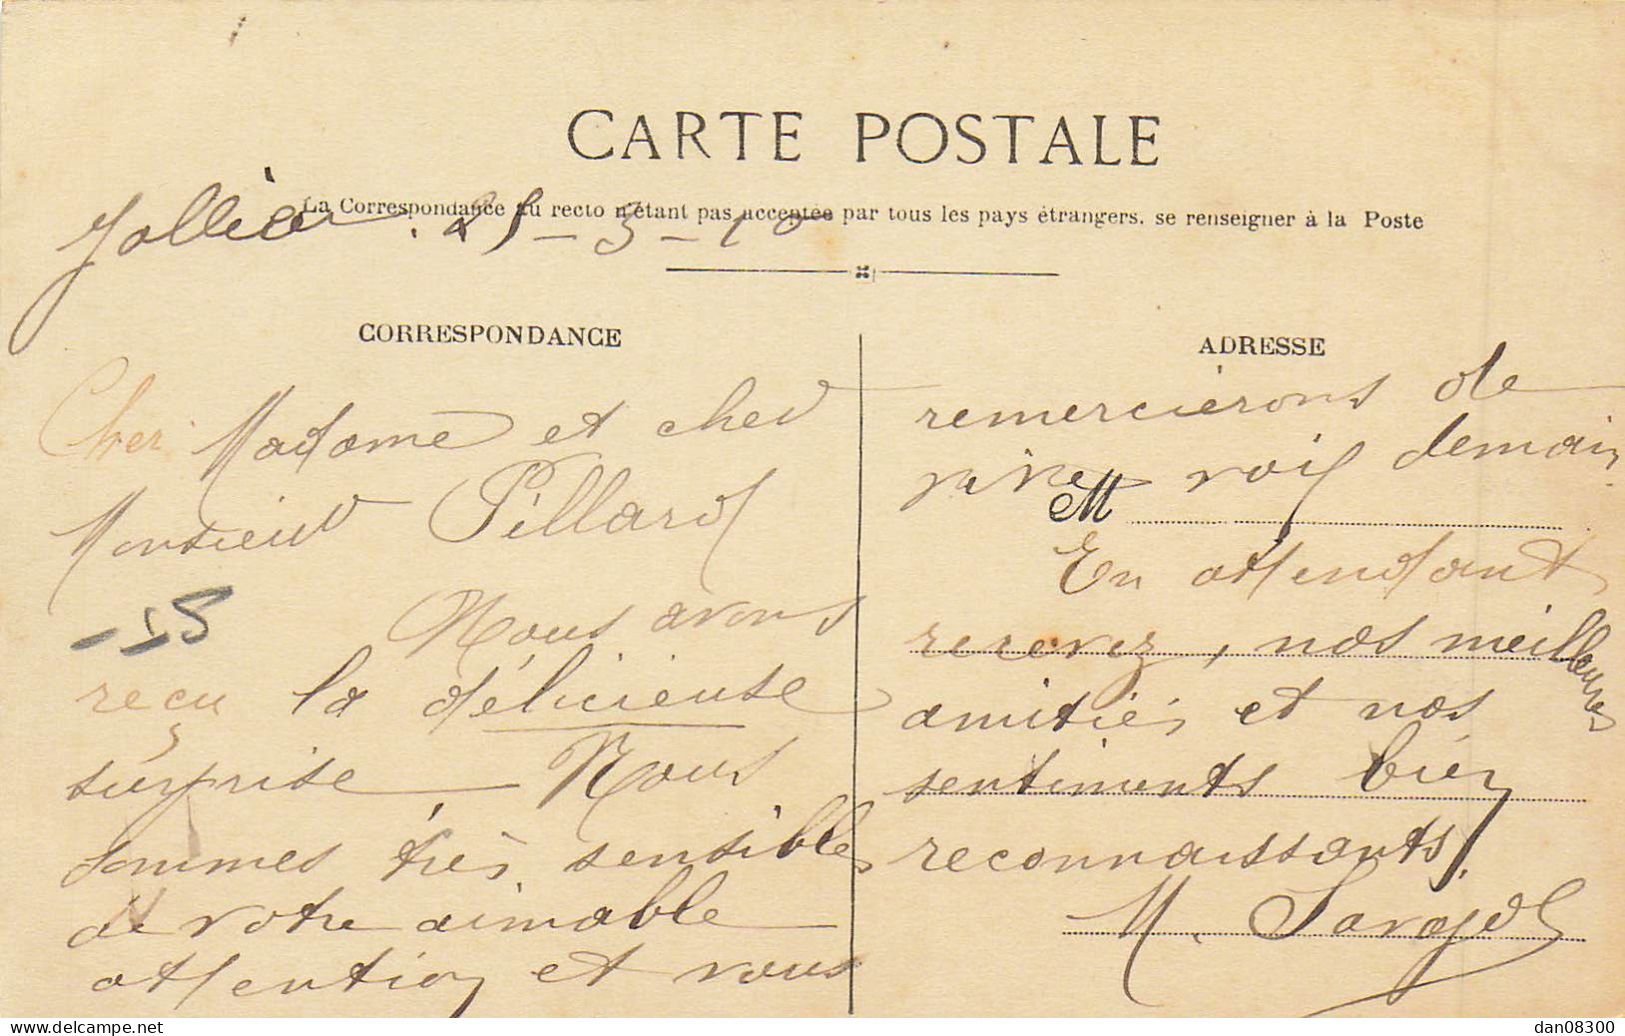 CARTE POSTALE
La Correspondance au recto n'étant pas acceptée par tous les pays étrangers. se renseigner à la Poste
25-3-10
CORRESPONDANCE
Cher Madame et cher
Monsieur Pillard
-15
Nous avons
reçu la délicieuse
surprise Nous
sommes très sensibles
de votre aimable
attention et vous
ADRESSE
remercierons de
vive voix demain
M
En attendant
recevez, nos meilleures
amitiés et nos
sentiments bien
reconnaissants.
M.
delcampe.net
dan08300